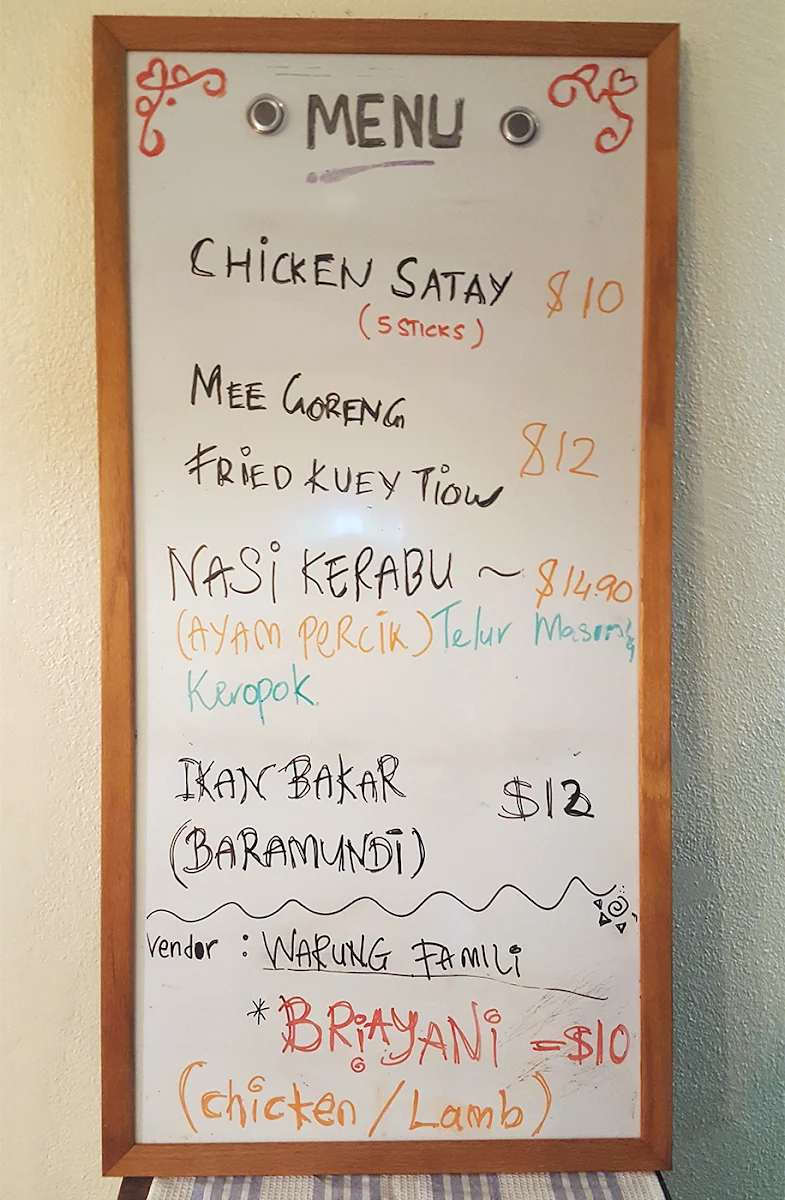 MENU
CHICKEN SATAY $10
(5 STICKS)
MEE GORENG
$12
FRIED KUEY TIOW
NASI KERABU ~ $14.90
(AYAM PERCIK) Telur Masin &
Keropok
IKAN BAKAR
(BARAMUNDI)
Vendor : WARUNG FAMILI
*BRIAYANI = $10
(chicken / Lamb)